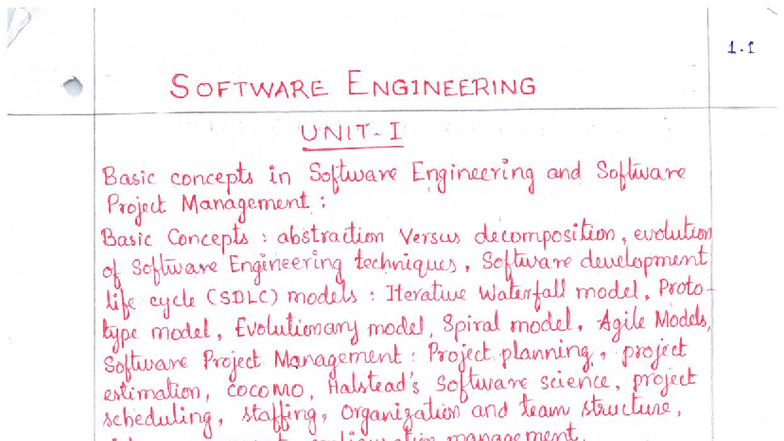 1.1
SOFTWARE ENGINEERING
UNIT-I
Basic concepts in Software Engineering and Software
Project Management :
Basic Concepts : abstraction Versus decomposition, evolution
of Software Engineering techniques, Software development
life cycle (SDLC) models : Iterative Waterfall model, Proto-
type model, Evolutionary model, Spiral model, Agile Models,
Software Project Management : Project planning, project
estimation, COCOMO, Halstead's Software science, project
scheduling, staffing, Organization and team structure,
management.